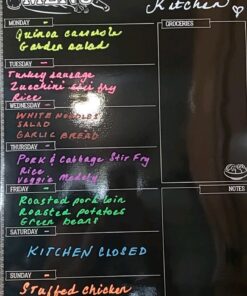 MENU
Kitchen
MONDAY
GROCERIES
Quinoa casserole
Garden salad
TUESDAY
Turkey sausage
Zucchini stir fry
Rice
WEDNESDAY
WHITE NOODLES
SALAD
GARLIC BREAD
THURSDAY
Pork & Cabbage Stir Fry
Rice
Veggie Medely
FRIDAY
NOTES
Roasted pork loin
Roasted potatoes
Green beans
SATURDAY
KITCHEN CLOSED
SUNDAY
Stuffed chicken